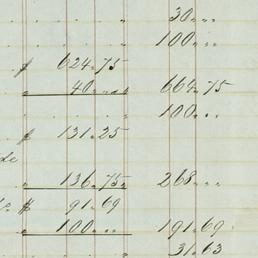 " 30 " "
" 100 " "
$ 624.75
" 40 " " " 664.75
" 100 " "
$ 131.25
" 136.75 " 268 " "
$ 91.69
" 100 " " 191.69
" 31.63